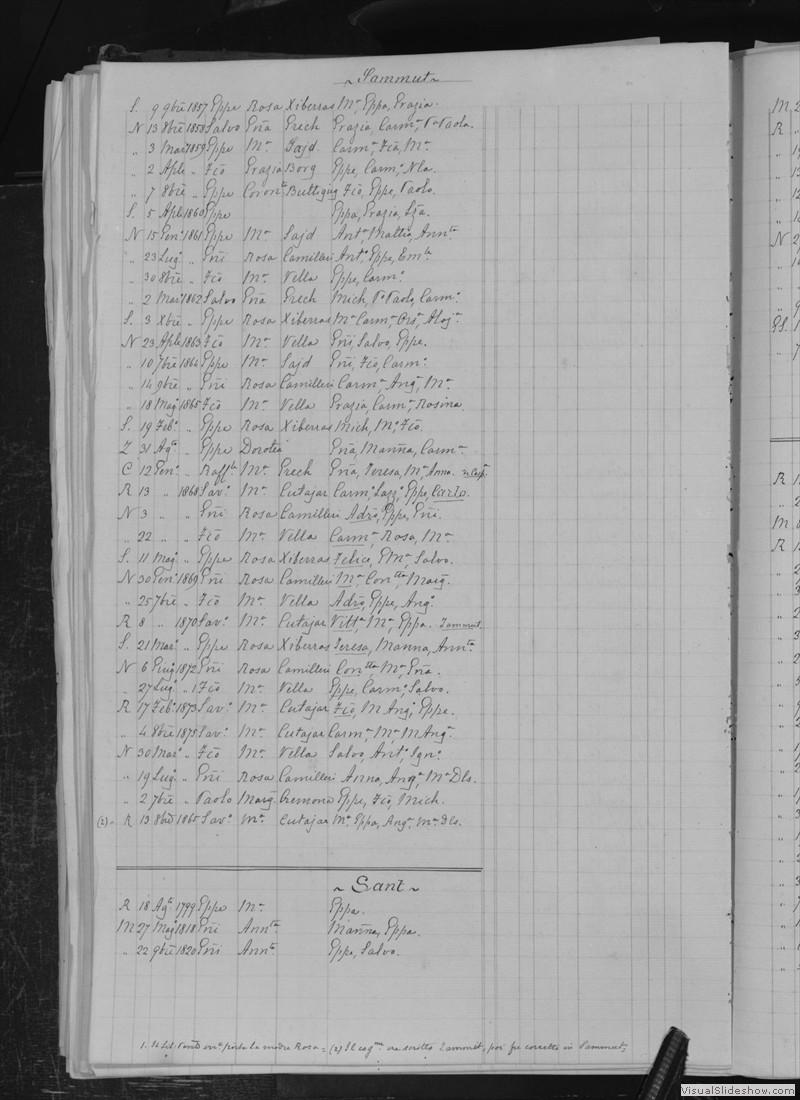 ~ Sammut ~
S. 9 9bre 1857 Eppe Rosa Xiberras Mª, Eppa, Grazia.
N 13 8bre 1858 Salvo Grech Grazia, Carmª, Vª Paola.
" 3 Mar 1859 Eppe Mª Sajd Carmª, Fcõ, Mª.
" 2 Aple " Fcõ Grazia Borg Eppe, Carmº, Nla.
" 7 8bre " Eppe Buttigieg Fcõ, Eppe, Paolo.
S. 5 Aple 1860 Eppe Eppa, Grazia,
N 15 Genº 1861 Eppe Mª Sajd Antª, Mattia, Annta
" 23 Lugº " Rosa Camilleri Antº, Eppe, Emla
" 30 8bre " Fcõ Mª Vella Eppe, Carmº
" 2 Mar 1862 Salvo Grech Mich, Vº Paolo, Carmº
S. 3 Xbre " Eppe Rosa Xiberras Mª Carmª,
N 23 Aple 1863 Fcõ Mª Vella Salvo, Eppe.
" 10 7bre 1864 Eppe Mª Sajd Fcõ, Carmº
" 14 9bre " Rosa Camilleri Carmª, Angª, Mª
" 18 Magº 1865 Fcõ Mª Vella Grazia, Carmª, Rosina.
S. 19 Febº " Eppe Rosa Xiberras Mich, Mº, Fcõ.
Z 31 Agto " Eppe Dorotea Marñna, Carmª
C 12 Genº " Raffle Mª Grech Teresa, Mª, Anna.
R 13 " 1868 Savº Mª Cutajar Carmº, Eppe, Carlo.
N 3 " " Rosa Camilleri Adrõ, Eppe,
" 22 " " Fcõ Mª Vella Carmª, Rosa, Mª
S. 11 Magº " Eppe Rosa Xiberras Felice, Salvo.
N 30 Genº 1869 Rosa Camilleri Mª, Marg.
" 25 7bre " Fcõ Mª Vella Adrõ, Eppe, Angº
R 8 " 1870 Savº Mª Cutajar Vittª, Mª, Eppa. Zammut.
S. 21 Marº " Eppe Rosa Xiberras Teresa, Marñna, Annta
N 6 Giugº 1872 Rosa Camilleri Mª,
" 27 Lugº " Fcõ Mª Vella Eppe, Carmº, Salvo.
R 17 Febº 1873 Savº Mª Cutajar Fcõ, M Angº, Eppe.
" 4 8bre 1875 Savº Mª Cutajar Carmª, Mª M Angª
N 30 Marº " Fcõ Mª Vella Salvo, Antº, Ignº
" 19 Lugº " Rosa Camilleri Anna, Angª, Mª Dls.
" 2 7bre " Paolo Marg. Cremona Eppe, Fcõ, Mich.
(2) R 13 8bre 1865 Savº Mª Cutajar Mª, Eppa, Angª, Mª Dls.
~ Sant ~
R 18 Agto 1799 Eppe Mª Eppa.
M 27 Magº 1818 Annta Marñna, Eppa.
" 22 9bre 1820 Annta Eppe, Salvo.
1. porta la madre Rosa = (2) Il cogme era scritto Zammut, poi fu corretto in Sammut;
VisualSlideshow.com